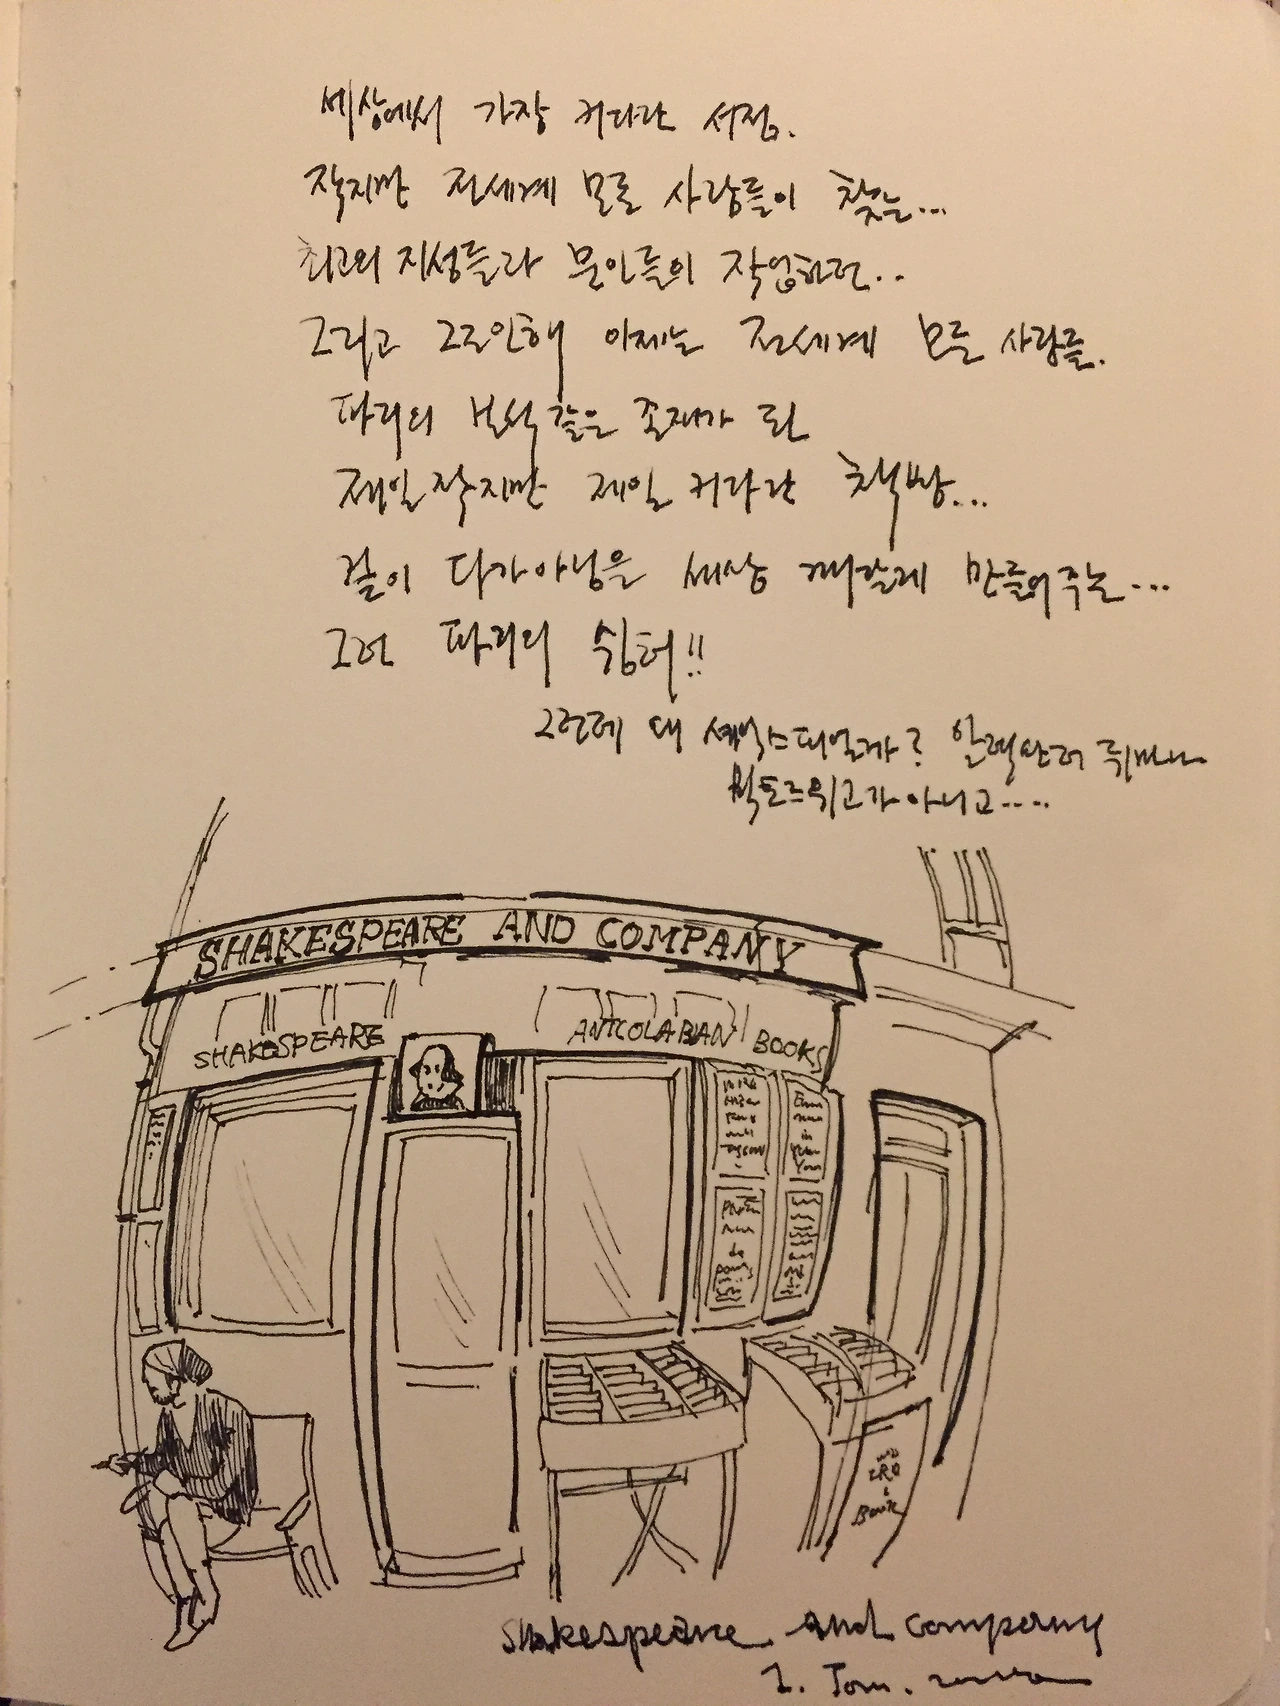 세상에서 가장 커다란 서점.
작지만 전세계 모든 사람들이 찾는...
최고의 지성들과 문인들의 작업하던..
그리고 그로인해 이제는 전세계 모든 사람들.
파리의 보석같은 존재가 된
제일 작지만 제일 커다란 책방...
겉이 다가아님을 세상
만들어주는...
그런 파리의 쉼터!!
그런데 왜 셰익스피어일까? 알렉산더 뒤마나
빅토르위고가 아니고....
SHAKESPEARE AND COMPANY
SHAKESPEARE
BOOKS
Shakespeare and company